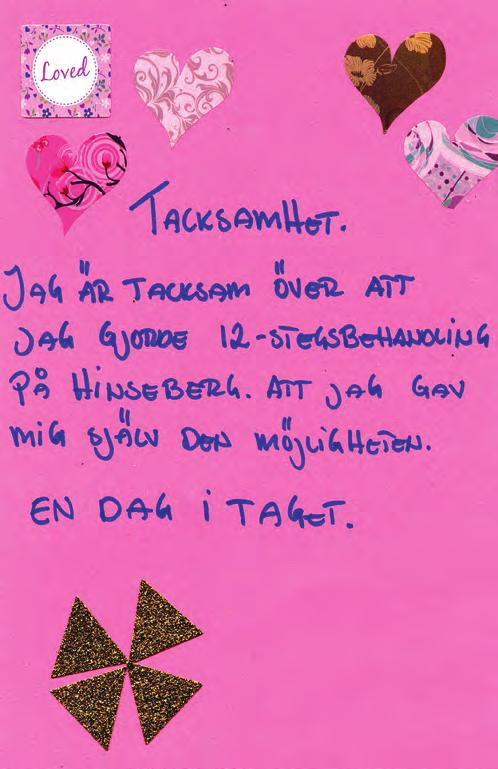 Loved
TACKSAMHET.
JAG ÄR TACKSAM ÖVER ATT
JAG GJORDE 12-STEGSBEHANDLING
PÅ HINSEBERG. ATT JAG GAV
MIG SJÄLV DEN MÖJLIGHETEN.
EN DAG I TAGET.